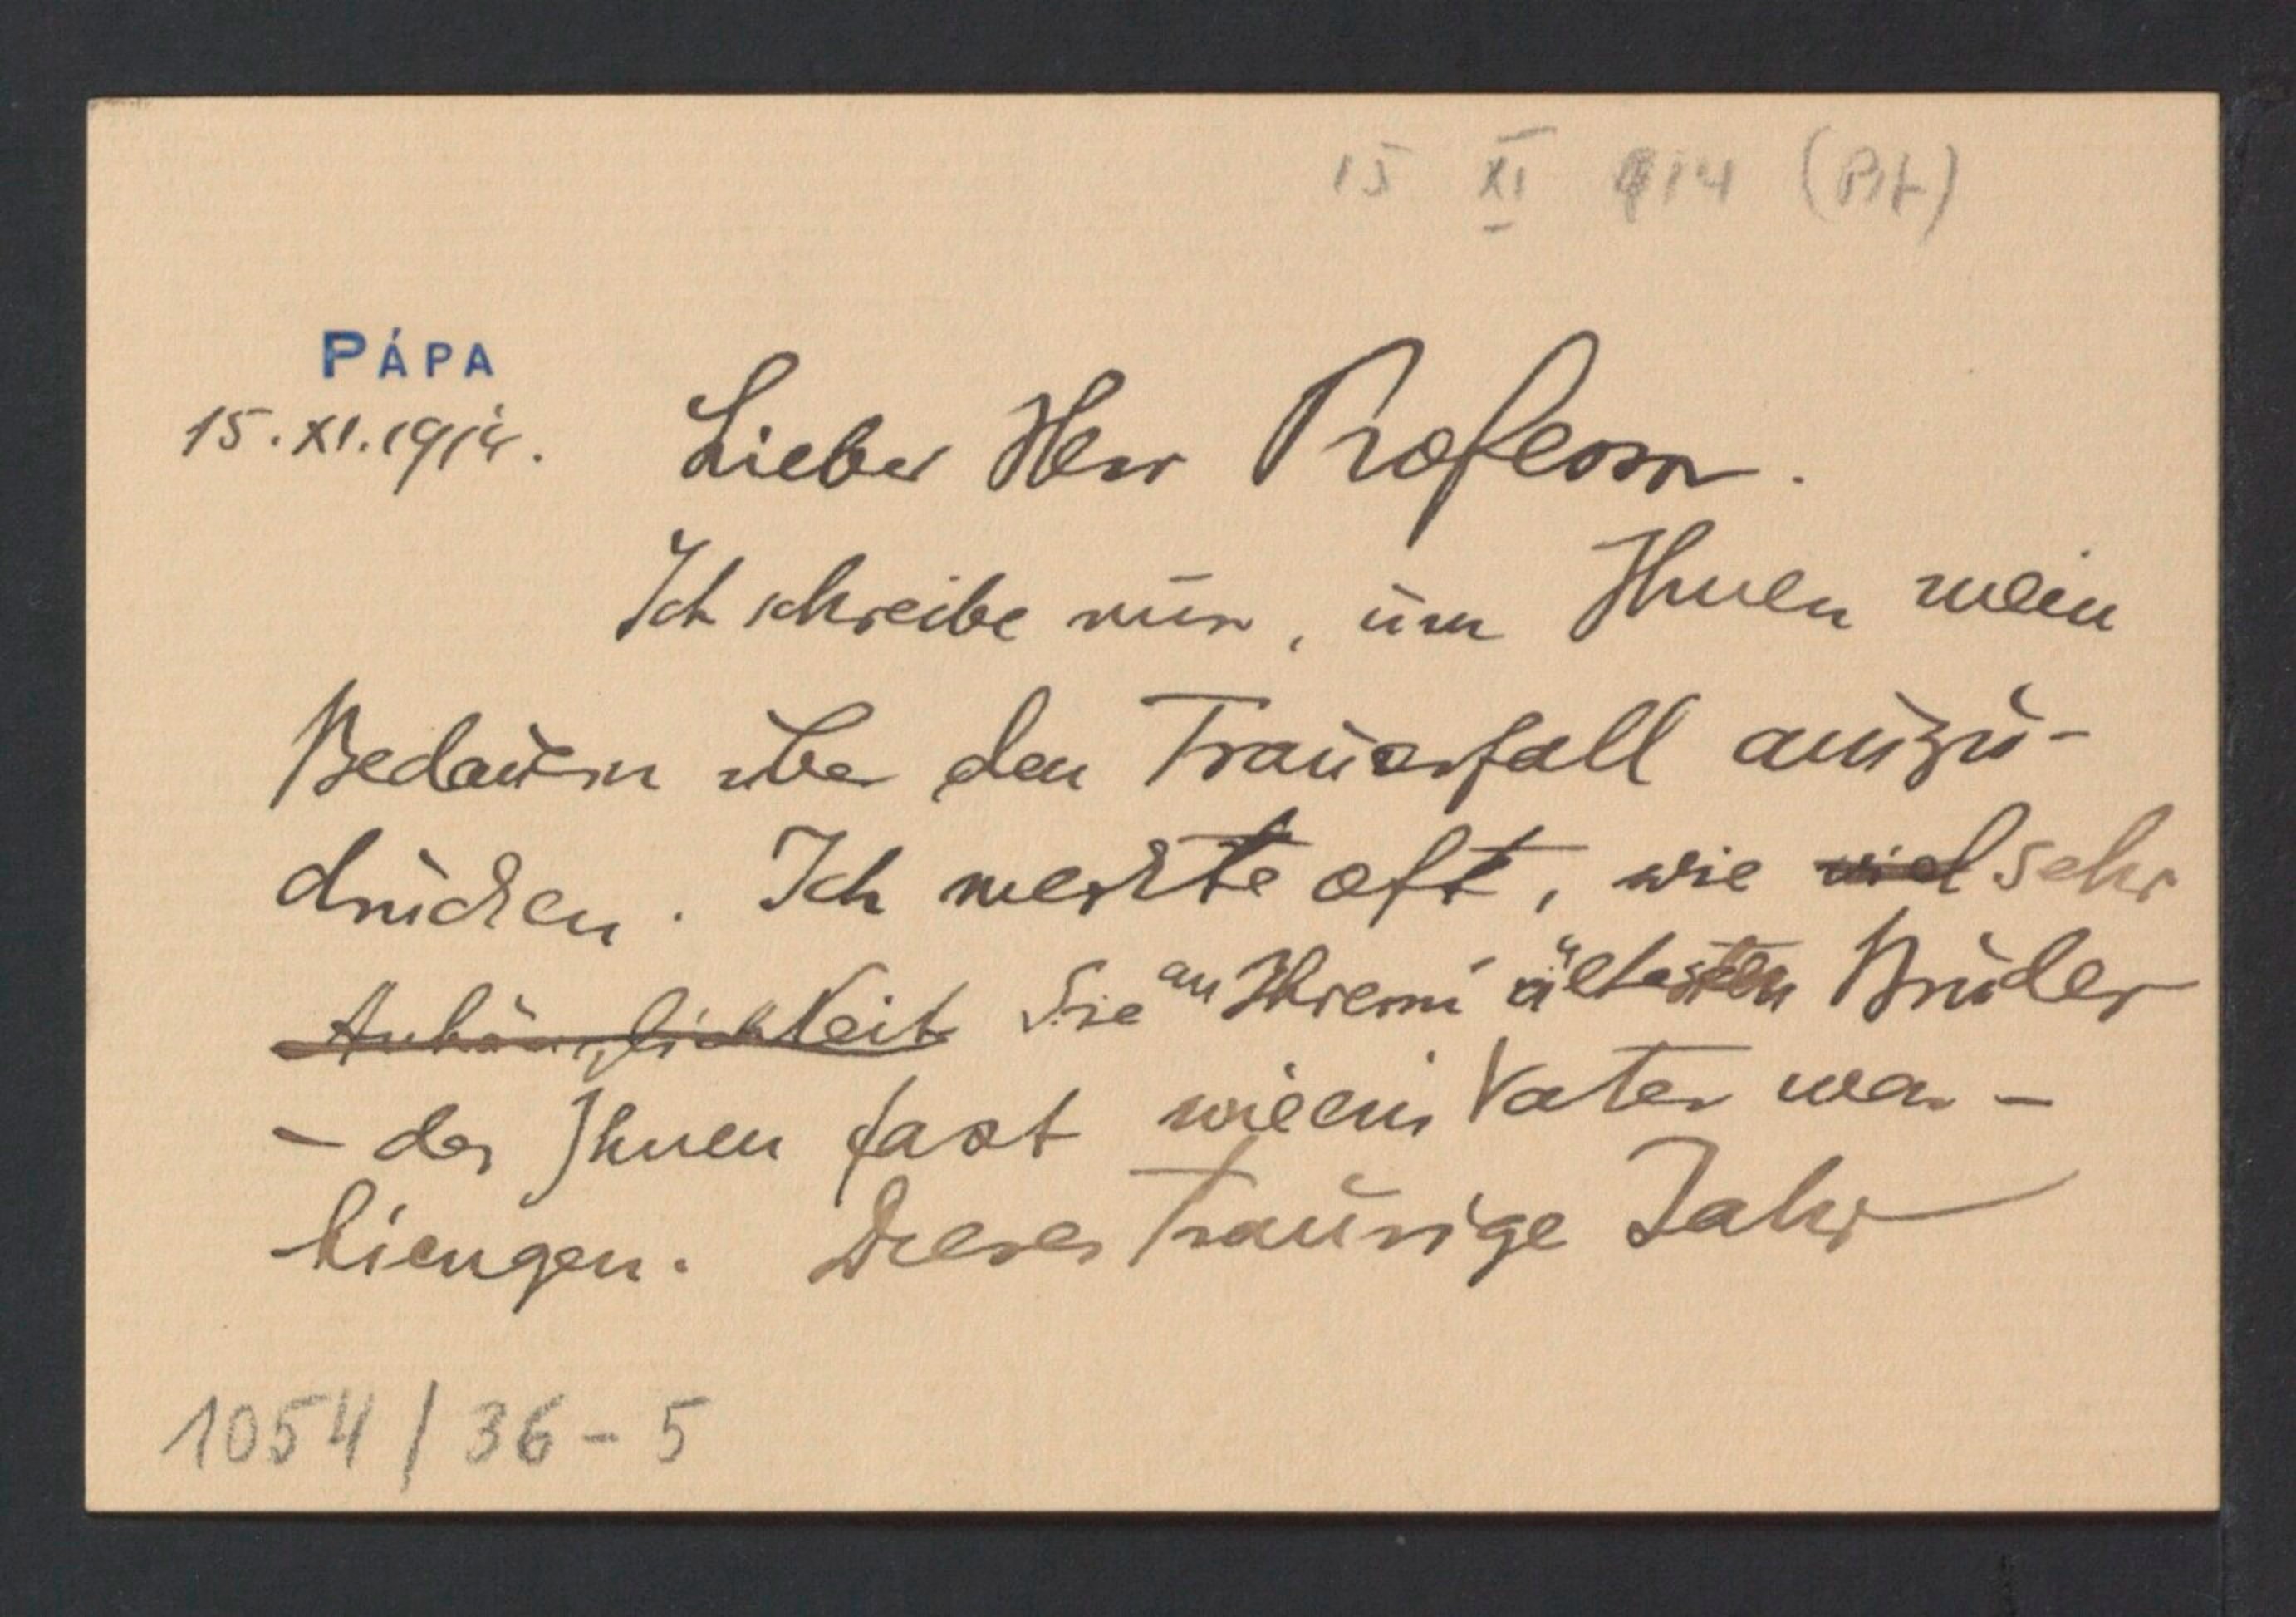 15 XI 914 (Pst)
PÁPA
15.XI.1914.
Lieber Herr Professor.
Ich schreibe nur, um Ihnen mein
Bedauern über den Trauerfall auszu-
drücken. Ich merkte oft, wie viel sehr
Anhänglichkeit Sie an Ihrem ältesten Bruder
- der Ihnen fast wie ein Vater war -
hiengen. Dieses traurige Jahr
1054 / 36 - 5